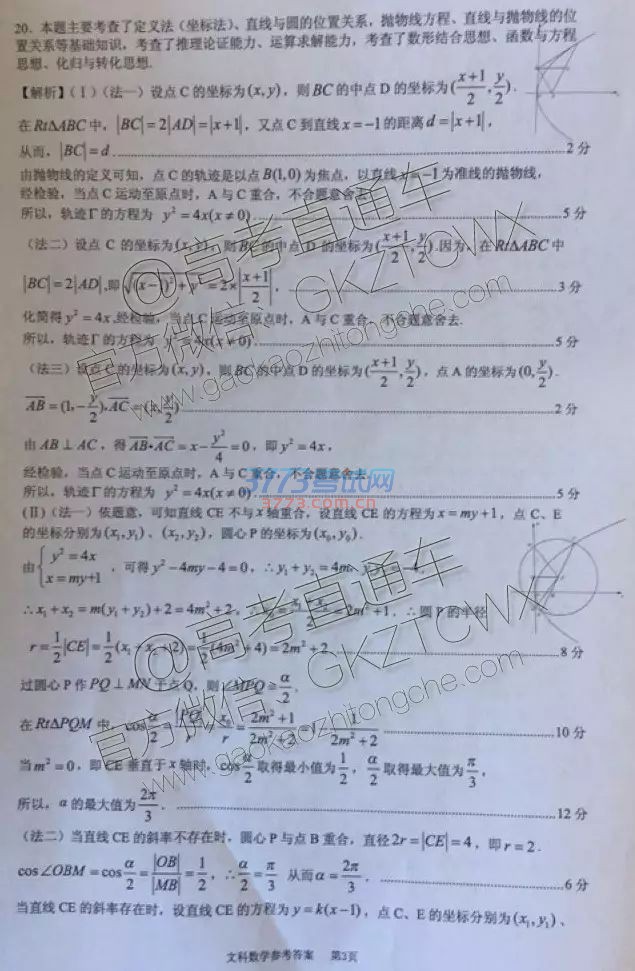 20. 本题主要考查了定义法（坐标法）、直线与圆的位置关系，抛物线方程、直线与抛物线的位
置关系等基础知识，考查了推理论证能力、运算求解能力，考查了数形结合思想、函数与方程
思想、化归与转化思想.
【解析】（Ⅰ）（法一）设点 C 的坐标为 (x, y)，则 BC 的中点 D 的坐标为 ((x+1)/2, y/2).
在 RtΔABC 中，|BC| = 2|AD| = |x+1|，又点 C 到直线 x = −1 的距离 d = |x+1|，
从而，|BC| = d ……2 分
由抛物线的定义可知，点 C 的轨迹是以点 B(1,0) 为焦点，以直线 x = −1 为准线的抛物线，
经检验，当点 C 运动至原点时，A 与 C 重合，不合题意舍去
所以，轨迹 Γ 的方程为 y² = 4x(x ≠ 0) ……5 分
（法二）设点 C 的坐标为 (x, y)，则 BC 的中点 D 的坐标为 ((x+1)/2, y/2).因为，在 RtΔABC 中
|BC| = 2|AD|,即 √((x−1)² + y²) = 2×|(x+1)/2|， ……3 分
化简得 y² = 4x,经检验，当点 C 运动至原点时，A 与 C 重合，不合题意舍去.
所以，轨迹 Γ 的方程为 y² = 4x(x ≠ 0). ……5 分
（法三）设点 C 的坐标为 (x, y)，则 BC 的中点 D 的坐标为 ((x+1)/2, y/2)，点 A 的坐标为 (0, y/2).
AB = (1, −y/2), AC = (x, y/2) ……2 分
由 AB ⊥ AC，得 AB·AC = x − y²/4 = 0，即 y² = 4x，
经检验，当点 C 运动至原点时，A 与 C 重合，不合题意舍去
所以，轨迹 Γ 的方程为 y² = 4x(x ≠ 0) ……5 分
(II)（法一）依题意，可知直线 CE 不与 x 轴重合，设直线 CE 的方程为 x = my + 1，点 C、E
的坐标分别为 (x₁, y₁)、(x₂, y₂)，圆心 P 的坐标为 (x₀, y₀).
由 { y² = 4x
x = my+1 ，可得 y² − 4my − 4 = 0，∴ y₁ + y₂ = 4m，
∴ x₁ + x₂ = m(y₁ + y₂) + 2 = 4m² + 2， = 2m² + 1，∴圆 P 的半径
r = 1/2|CE| = 1/2(x₁ + x₂ + 2) = 1/2(4m² + 4) = 2m² + 2. ……8 分
过圆心 P 作 PQ ⊥ MN 于点 Q，则 ∠MPQ = α/2.
在 RtΔPQM 中，cos α/2 = |PQ|/r = x₀/r = (2m²+1)/(2m²+2) = 1 − 1/(2m²+2) ……10 分
当 m² = 0，即 CE 垂直于 x 轴时，cos α/2 取得最小值为 1/2，α/2 取得最大值为 π/3，
所以，α 的最大值为 2π/3. ……12 分
（法二）当直线 CE 的斜率不存在时，圆心 P 与点 B 重合，直径 2r = |CE| = 4，即 r = 2.
cos∠OBM = cos α/2 = |OB|/|MB| = 1/2，∴ α/2 = π/3 从而 α = 2π/3. ……6 分
当直线 CE 的斜率存在时，设直线 CE 的方程为 y = k(x−1)，点 C、E 的坐标分别为 (x₁, y₁)、
文科数学参考答案 第3页
@高考直通车
官方微信 GKZTCWX
www.gaokaozhitongche.com
3773考试网
3773.com
@高考直通车
官方微信 GKZTCWX
www.gaokaozhitongche.com